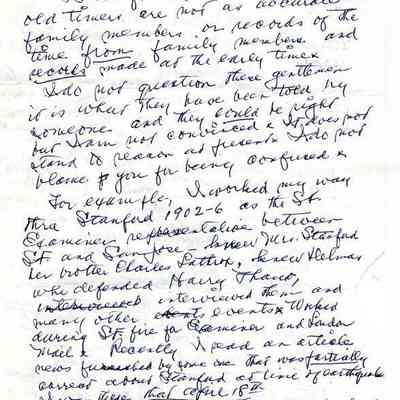 old timers are not as accurate
family members or records of the
time from family members and
records made at the early times
I do not question these gentlemen
it is what they have been told by
someone and they could be right
but I am not convinced x It does not
stand to reason at present I do not
blame you for being confused x
For example, I worked my way
thru Stanford 1902-6 as the S.F.
Examiner representative between
SF and San Jose - knew Mrs. Stanford
her brother Charles Lathrop, knew
who defended Harry Thaw,
interviewed them and
many other events x Worked
during S.F. fire for Examiner and London
Mail x Recently I read an article
news by some one that was partially
correct about Stanford at time of earthquake
that April 18th